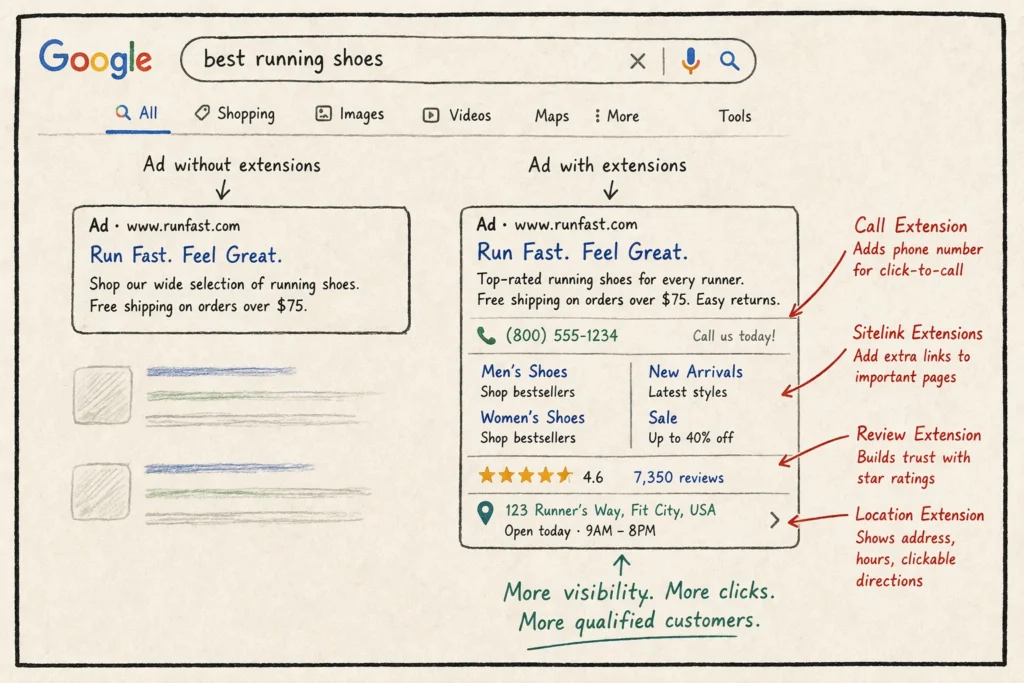 Google
best running shoes
All Shopping Images Videos Maps More Tools
Ad without extensions
Ad · www.runfast.com
Run Fast. Feel Great.
Shop our wide selection of running shoes.
Free shipping on orders over $75.
Ad with extensions
Ad · www.runfast.com
Run Fast. Feel Great.
Top-rated running shoes for every runner.
Free shipping on orders over $75. Easy returns.
(800) 555-1234 Call us today!
Men's Shoes
Shop bestsellers
Women's Shoes
Shop bestsellers
New Arrivals
Latest styles
Sale
Up to 40% off
4.6 7,350 reviews
123 Runner's Way, Fit City, USA
Open today · 9AM – 8PM
More visibility. More clicks.
More qualified customers.
Call Extension
Adds phone number
for click-to-call
Sitelink Extensions
Add extra links to
important pages
Review Extension
Builds trust with
star ratings
Location Extension
Shows address,
hours, clickable
directions